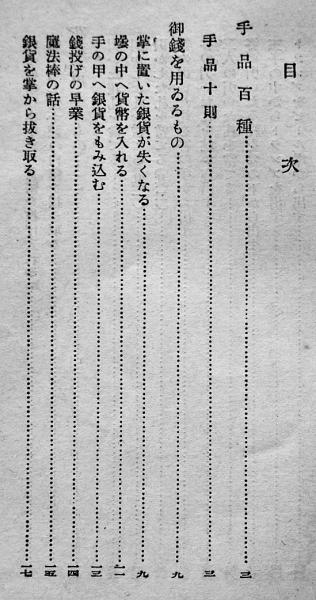 目次
手品百種……三
手品十則……三
御錢を用ゐるもの……九
掌に置いた銀貨が失くなる……九
壜の中へ貨幣を入れる……一一
手の甲へ銀貨をもみ込む……一三
錢投げの早業……一四
魔法棒の話……一五
銀貨を掌から拔き取る……一七